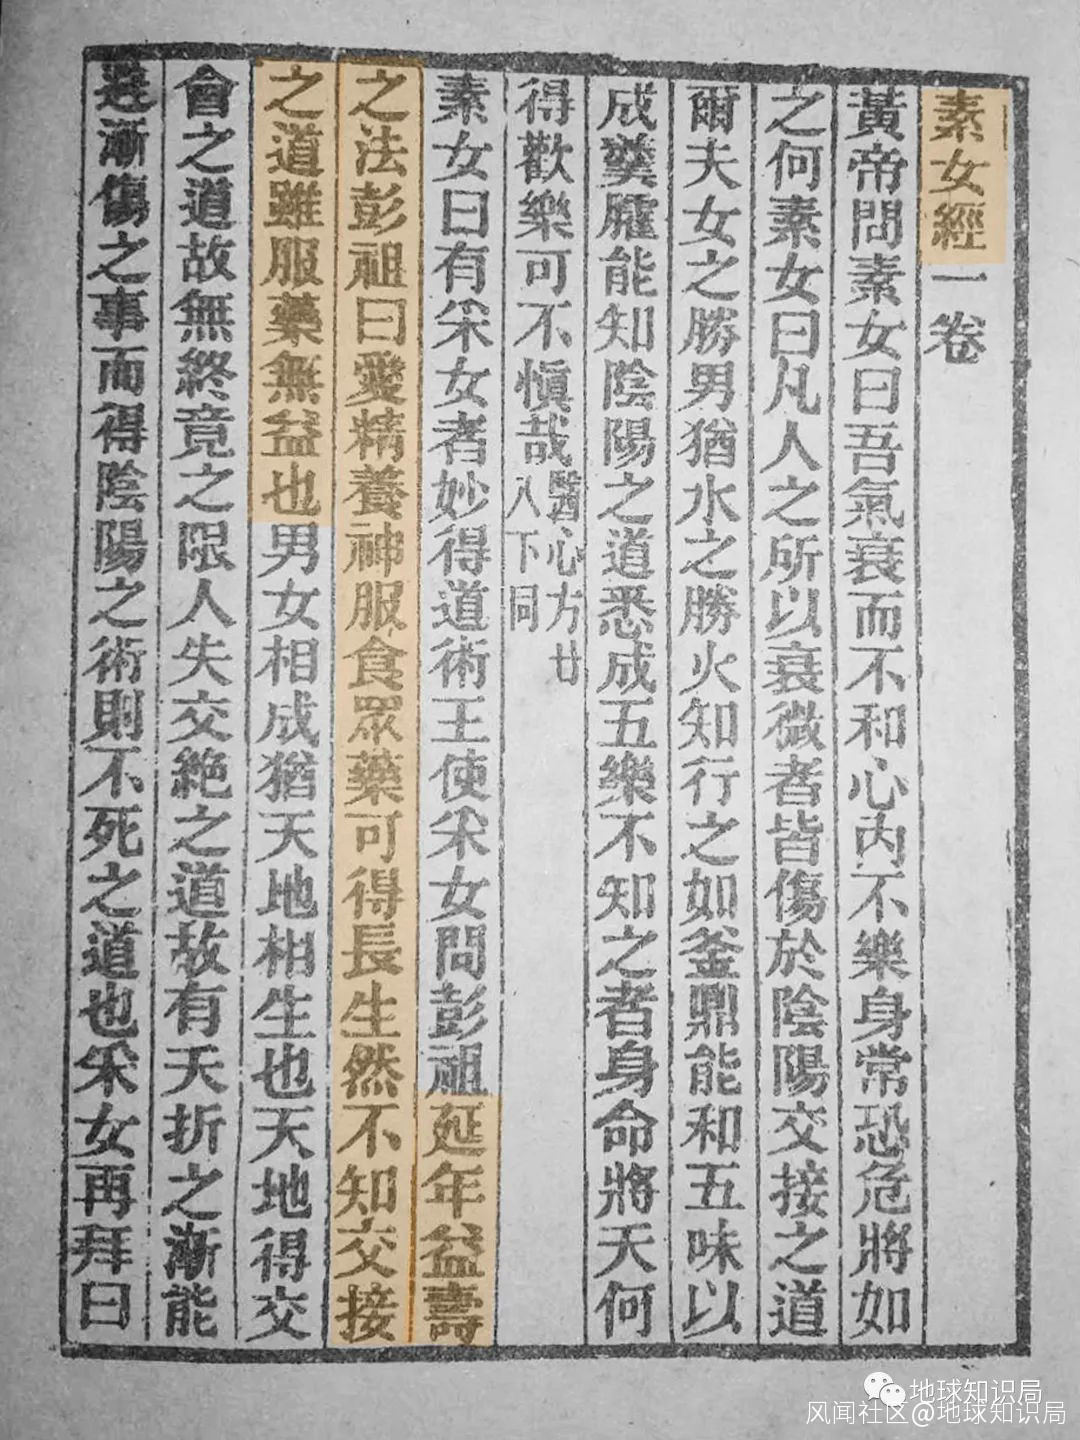 素女經一卷
黃帝問素女曰吾氣衰而不和心內不樂身常恐危將如
之何素女曰凡人之所以衰微者皆傷於陰陽交接之道
爾夫女之勝男猶水之勝火知行之如釜鼎能和五味以
成羹臛能知陰陽之道悉成五樂不知之者身命將夭何
得歡樂可不慎哉醫心方廿八下同
素女曰有采女者妙得道術王使采女問彭祖延年益壽
之法彭祖曰愛精養神服食眾藥可得長生然不知交接
之道雖服藥無益也男女相成猶天地相生也天地得交
會之道故無終竟之限人失交絕之道故有夭折之漸能
避漸傷之事而得陰陽之術則不死之道也采女再拜曰
地球知识局
风闻社区@地球知识局